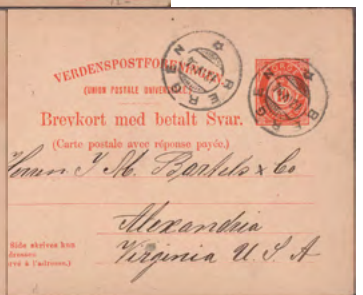 VERDENSPOSTFORENINGEN
(UNION POSTALE UNIVERSELLE)
BERGEN
BERGEN
Brevkort med betalt Svar.
(Carte postale avec réponse payée.)
Herrn J. M. Bartels & Co
Alexandria
Virginia U. S. A
Side skrives kun
dressen
rvé à l'adresse.)